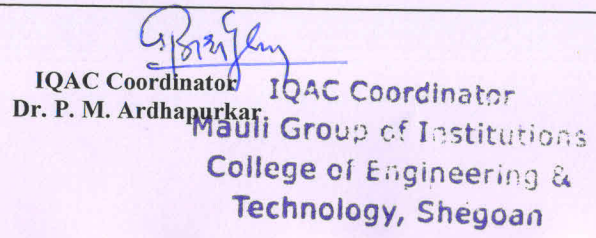 IQAC Coordinator
Dr. P. M. Ardhapurkar
IQAC Coordinator
Mauli Group of Institutions
College of Engineering &
Technology, Shegoan